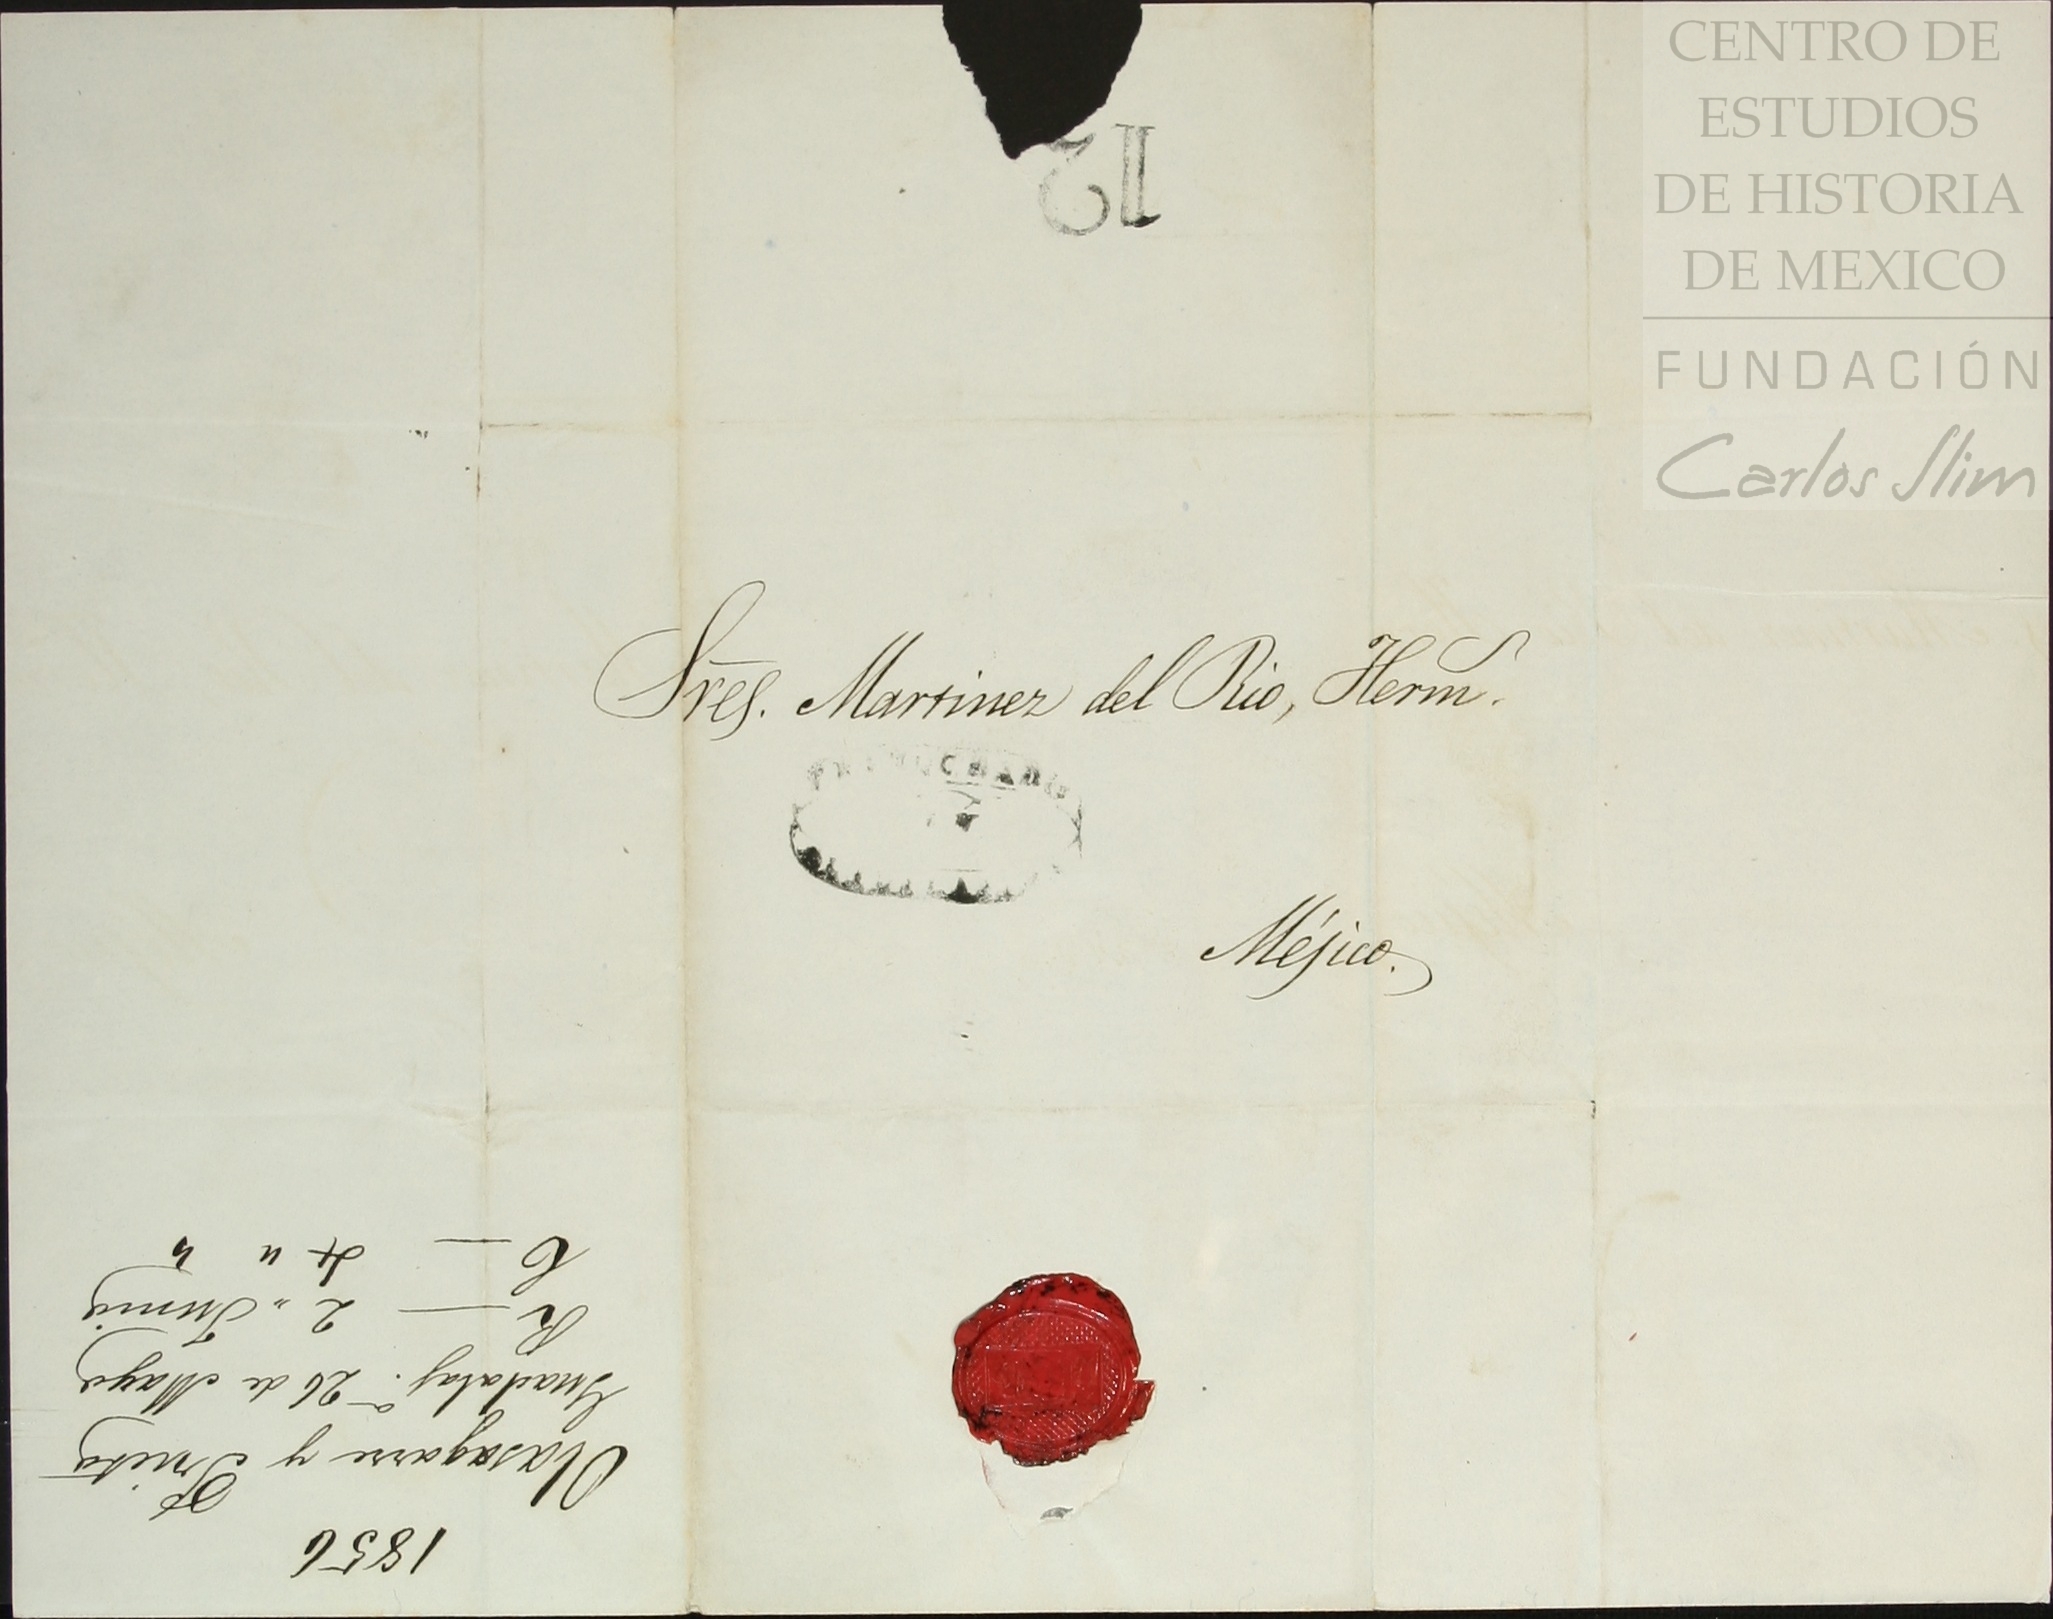 CENTRO DE
ESTUDIOS
DE HISTORIA
DE MEXICO
FUNDACIÓN
Carlos Slim
12
Sres. Martinez del Rio, Herms.
FRANQUEADO
Méjico.
1856
Olasagarre y Prieto
Guadalaja. 26 de Mayo
R — 2 " Junio
C — 4 " "